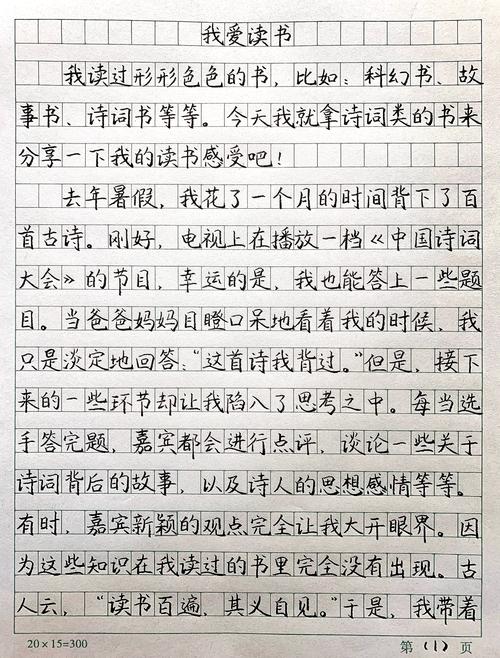 我爱读书
我读过形形色色的书，比如：科幻书、故
事书、诗词书等等。今天我就拿诗词类的书来
分享一下我的读书感受吧！
去年暑假，我花了一个月的时间背下了百
首古诗。刚好，电视上在播放一档《中国诗词
大会》的节目，幸运的是，我也能答上一些题
目。当爸爸妈妈目瞪口呆地看着我的时候，我
只是淡定地回答：“这首诗我背过。”但是，接下
来的一些环节却让我陷入了思考之中。每当选
手答完题，嘉宾都会进行点评，谈论一些关于
诗词背后的故事，以及诗人的思想感情等等。
有时，嘉宾新颖的观点完全让我大开眼界。因
为这些知识在我读过的书里完全没有出现。古
人云，“读书百遍，其义自见。”于是，我带着
20×15=300 第（1）页